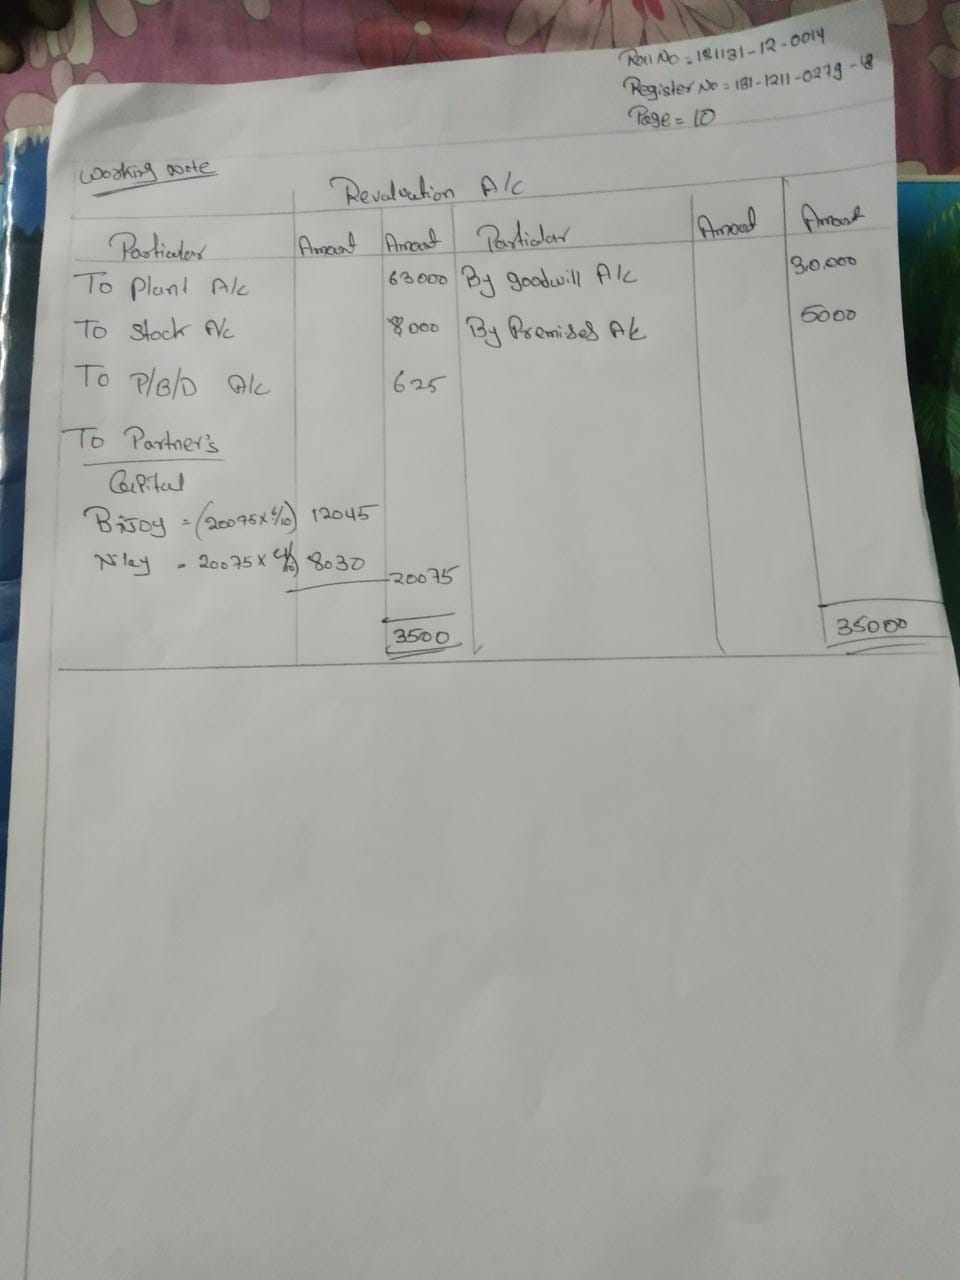 Roll No = 181131-12-0014
Register No = 131-1211-0279-18
Page = 10
Working note
Revaluation A/c
Particular Amount Amount Particular Amount Amount
To Plant A/c 63000 By goodwill A/c 30,000
To Stock A/c 8000 By Premises A/c 5000
To P/B/D A/c 625
To Partner's
Capital
Bijoy = (20075 x 6/10) 12045
Nilay = 20075 x 4/10) 8030 20075
3500 35000